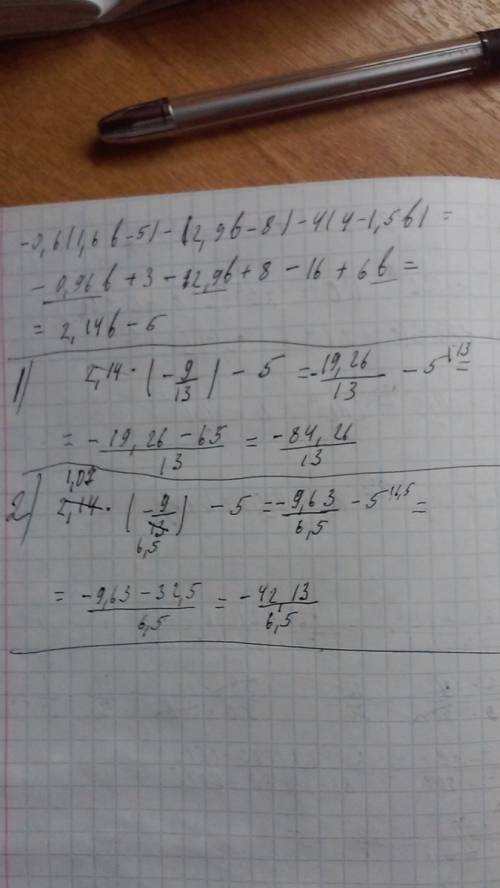 -0,6(1,6b-5)-(2,9b-8)-4(4-1,5b)=
-0,96b+3-2,9b+8-16+6b=
=2,14b-5
1) 2,14·(-9/13)-5=-19,26/13-5^{\13}=
=-19,26-65/13=-84,26/13
1,07
2) 2,14·(-9/13)-5=-9,63/6,5-5=
6,5
=-9,63-32,5/6,5=-42 13/6,5